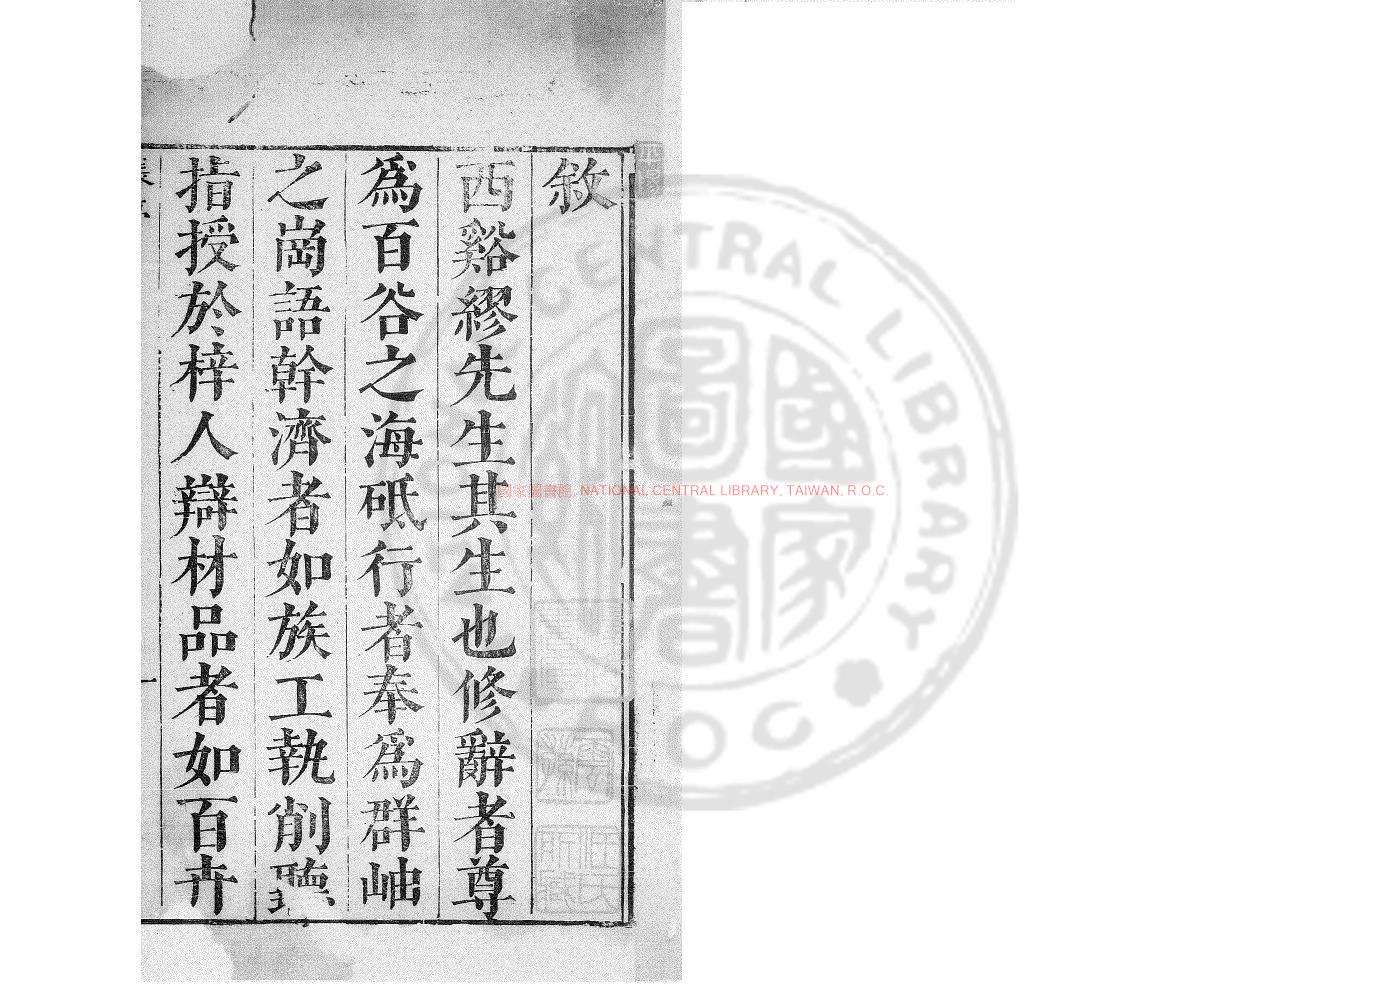 敘
西谿繆先生其生也修辭者尊
爲百谷之海砥行者奉爲群岫
之崗語幹濟者如族工執削聽
指授於梓人辯材品者如百卉
一
國家圖書館, NATIONAL CENTRAL LIBRARY, TAIWAN, R.O.C.